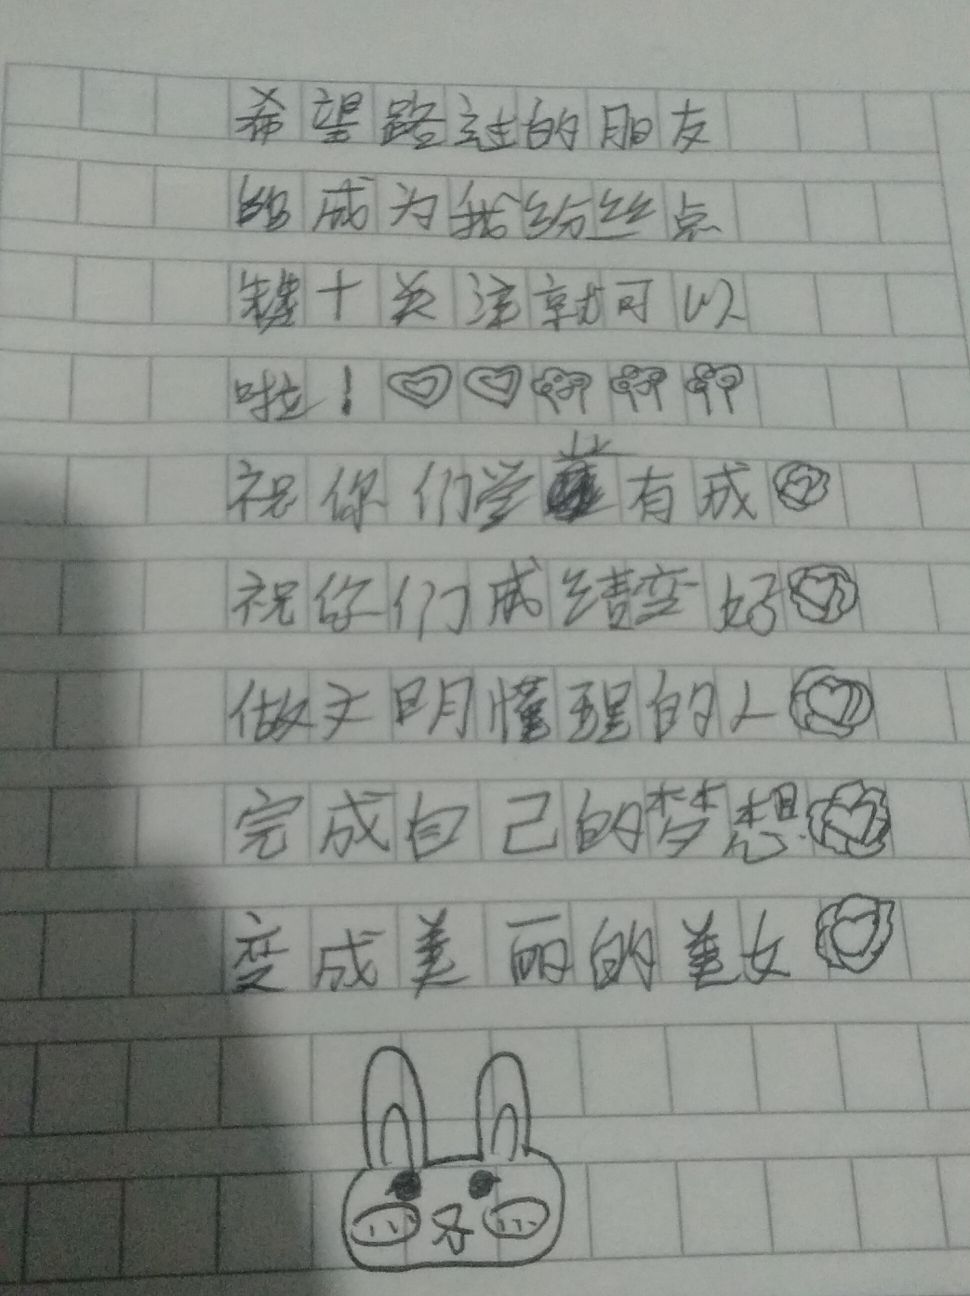 希望路过的朋友
能成为我纷丝点
键十关注就可以
啦！
祝你们学有成
祝你们成绩变好
做文明懂醒的人
完成自己的梦想
变成美丽的美女